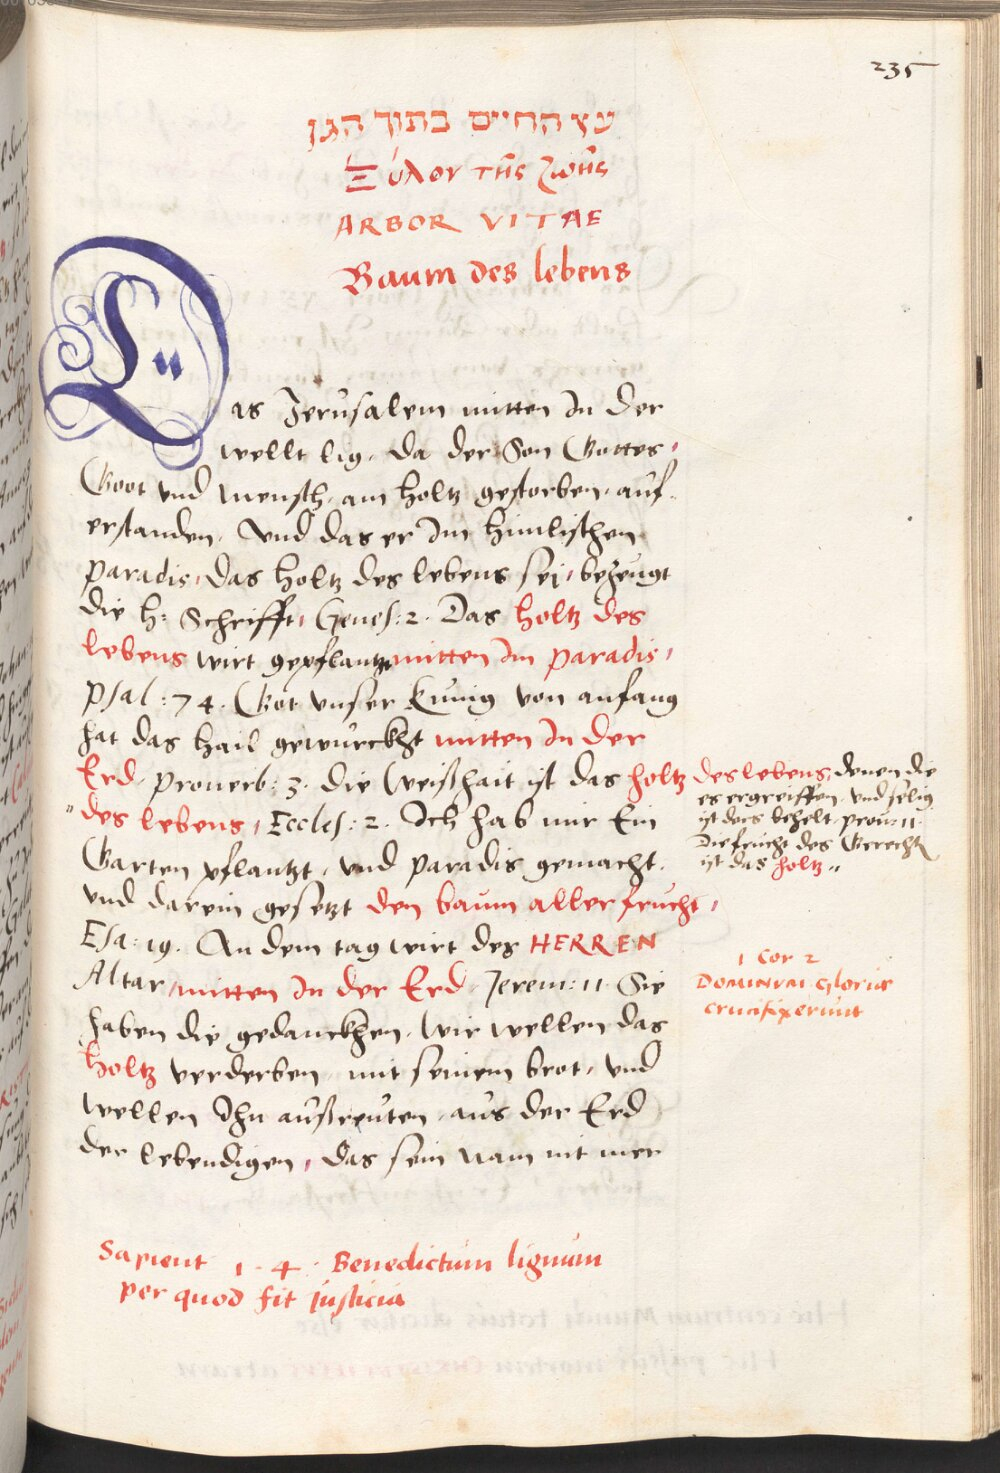 235
עץ החיים בתוך הגן
Ξύλον τῆς ζωῆς
ARBOR VITAE
Baum des lebens
Das Jerusalem mitten In der
wellt lig, da der Son Gottes,
Goot vnd mensch, am holtz gestorben, auf
erstanden, Vnd das er Im himlischen
paradis, das holtz des lebens sej, bezeugt
die h: Schrifft, Genes: 2. Das holtz des
lebens wirt gepflantz mitten Im paradis,
psal: 74. Got vnser Kunig von anfang
hat das hail gewürckht mitten In der
Erd, prouerb: 3. die Weißhait ist das holtz des lebens, denen die
es ergreiffen, vnd selig
ist ders behelt. prou: 11.
Die frucht des Gerecht
ist das holtz "
" des lebens, Eccles: 2. Ich hab mir Ein
Garten pflantzt, vnd paradis gemacht,
vnd darein gesetzt den baum aller frucht,
Esa: 19. An dem tag wirt des HERREN
Altar, mitten In der Erd, Jerem: 11. Sie
1 Cor 2
DOMINUM Gloriae
crucifixerunt
haben die gedanckhen, Wir wellen das
holtz verderben, mit seinem brot, vnd
wellen Ihn außreuten, aus der Erd
der lebendigen, das sein nam nit mer
Sapient 14. Benedictum lignum
per quod fit justicia